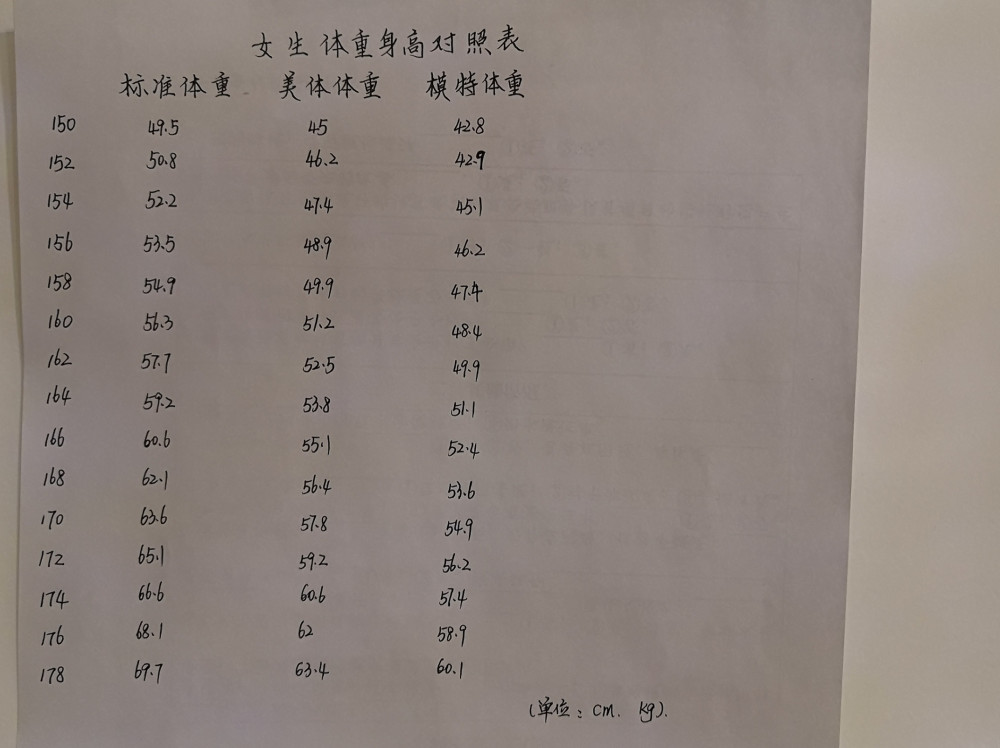 女生体重身高对照表
标准体重 美体体重 模特体重
150 49.5 45 42.8
152 50.8 46.2 42.9
154 52.2 47.4 45.1
156 53.5 48.9 46.2
158 54.9 49.9 47.4
160 56.3 51.2 48.4
162 57.7 52.5 49.9
164 59.2 53.8 51.1
166 60.6 55.1 52.4
168 62.1 56.4 53.6
170 63.6 57.8 54.9
172 65.1 59.2 56.2
174 66.6 60.6 57.4
176 68.1 62 58.9
178 69.7 63.4 60.1
(单位：cm. kg).